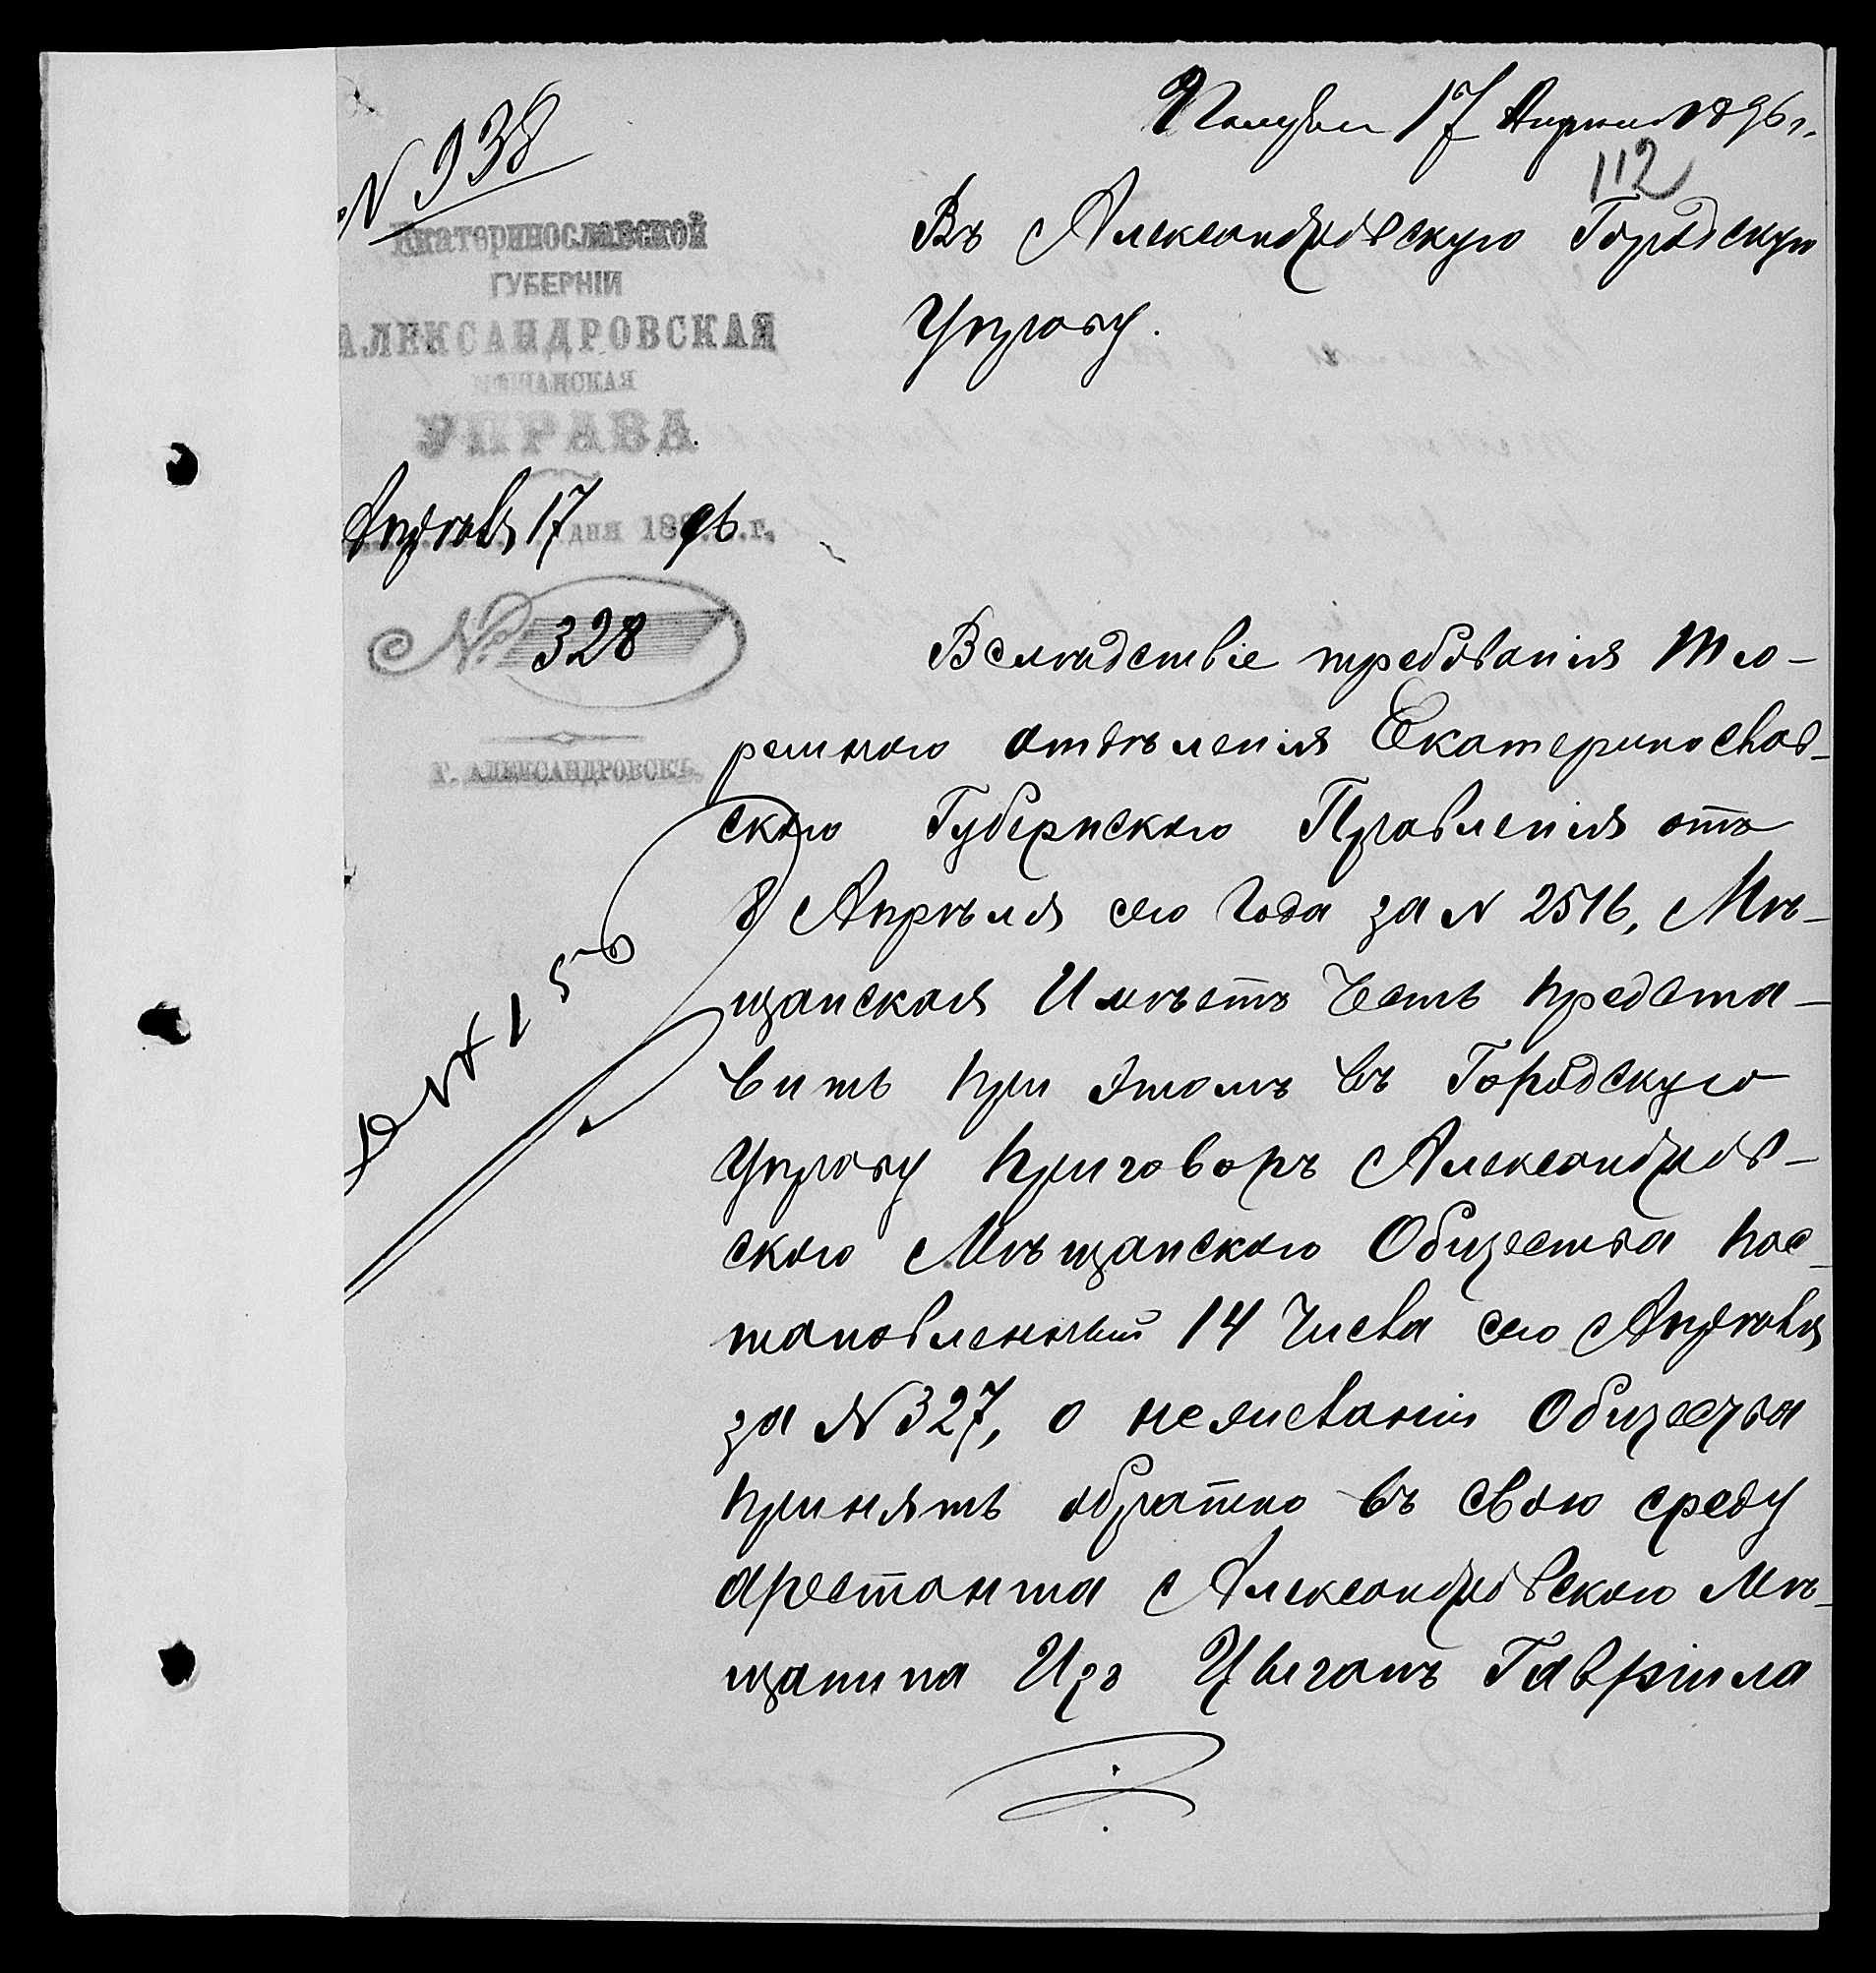 № 938
Получен 17 Апреля 1896 г.
112
Екатеринославской
ГУБЕРНІИ
АЛЕКСАНДРОВСКАЯ
МѢЩАНСКАЯ
УПРАВА
Апрѣля 17 дня 1896 г.
№ 328
Г. АЛЕКСАНДРОВСКЪ.
Въ Александровскую Городскую
Управу.
Вслѣдствіе требованія Тю-
ремного отдѣленія Екатеринослав-
ского Губернского Правленія отъ
8 Апрѣля сего Года за № 2516, Мѣ-
щанская Имѣетъ Честь предста-
вить при этомъ въ Городскую
Управу приговоръ Александров-
ского Мѣщанского Общества пос-
тановленный 14 Числа сего Апрѣля
за № 327, о нежеланіи Общества
принять обратно въ свою среду
арестанта Александровского Мѣ-
щанина Изъ Цыганъ Гавріила